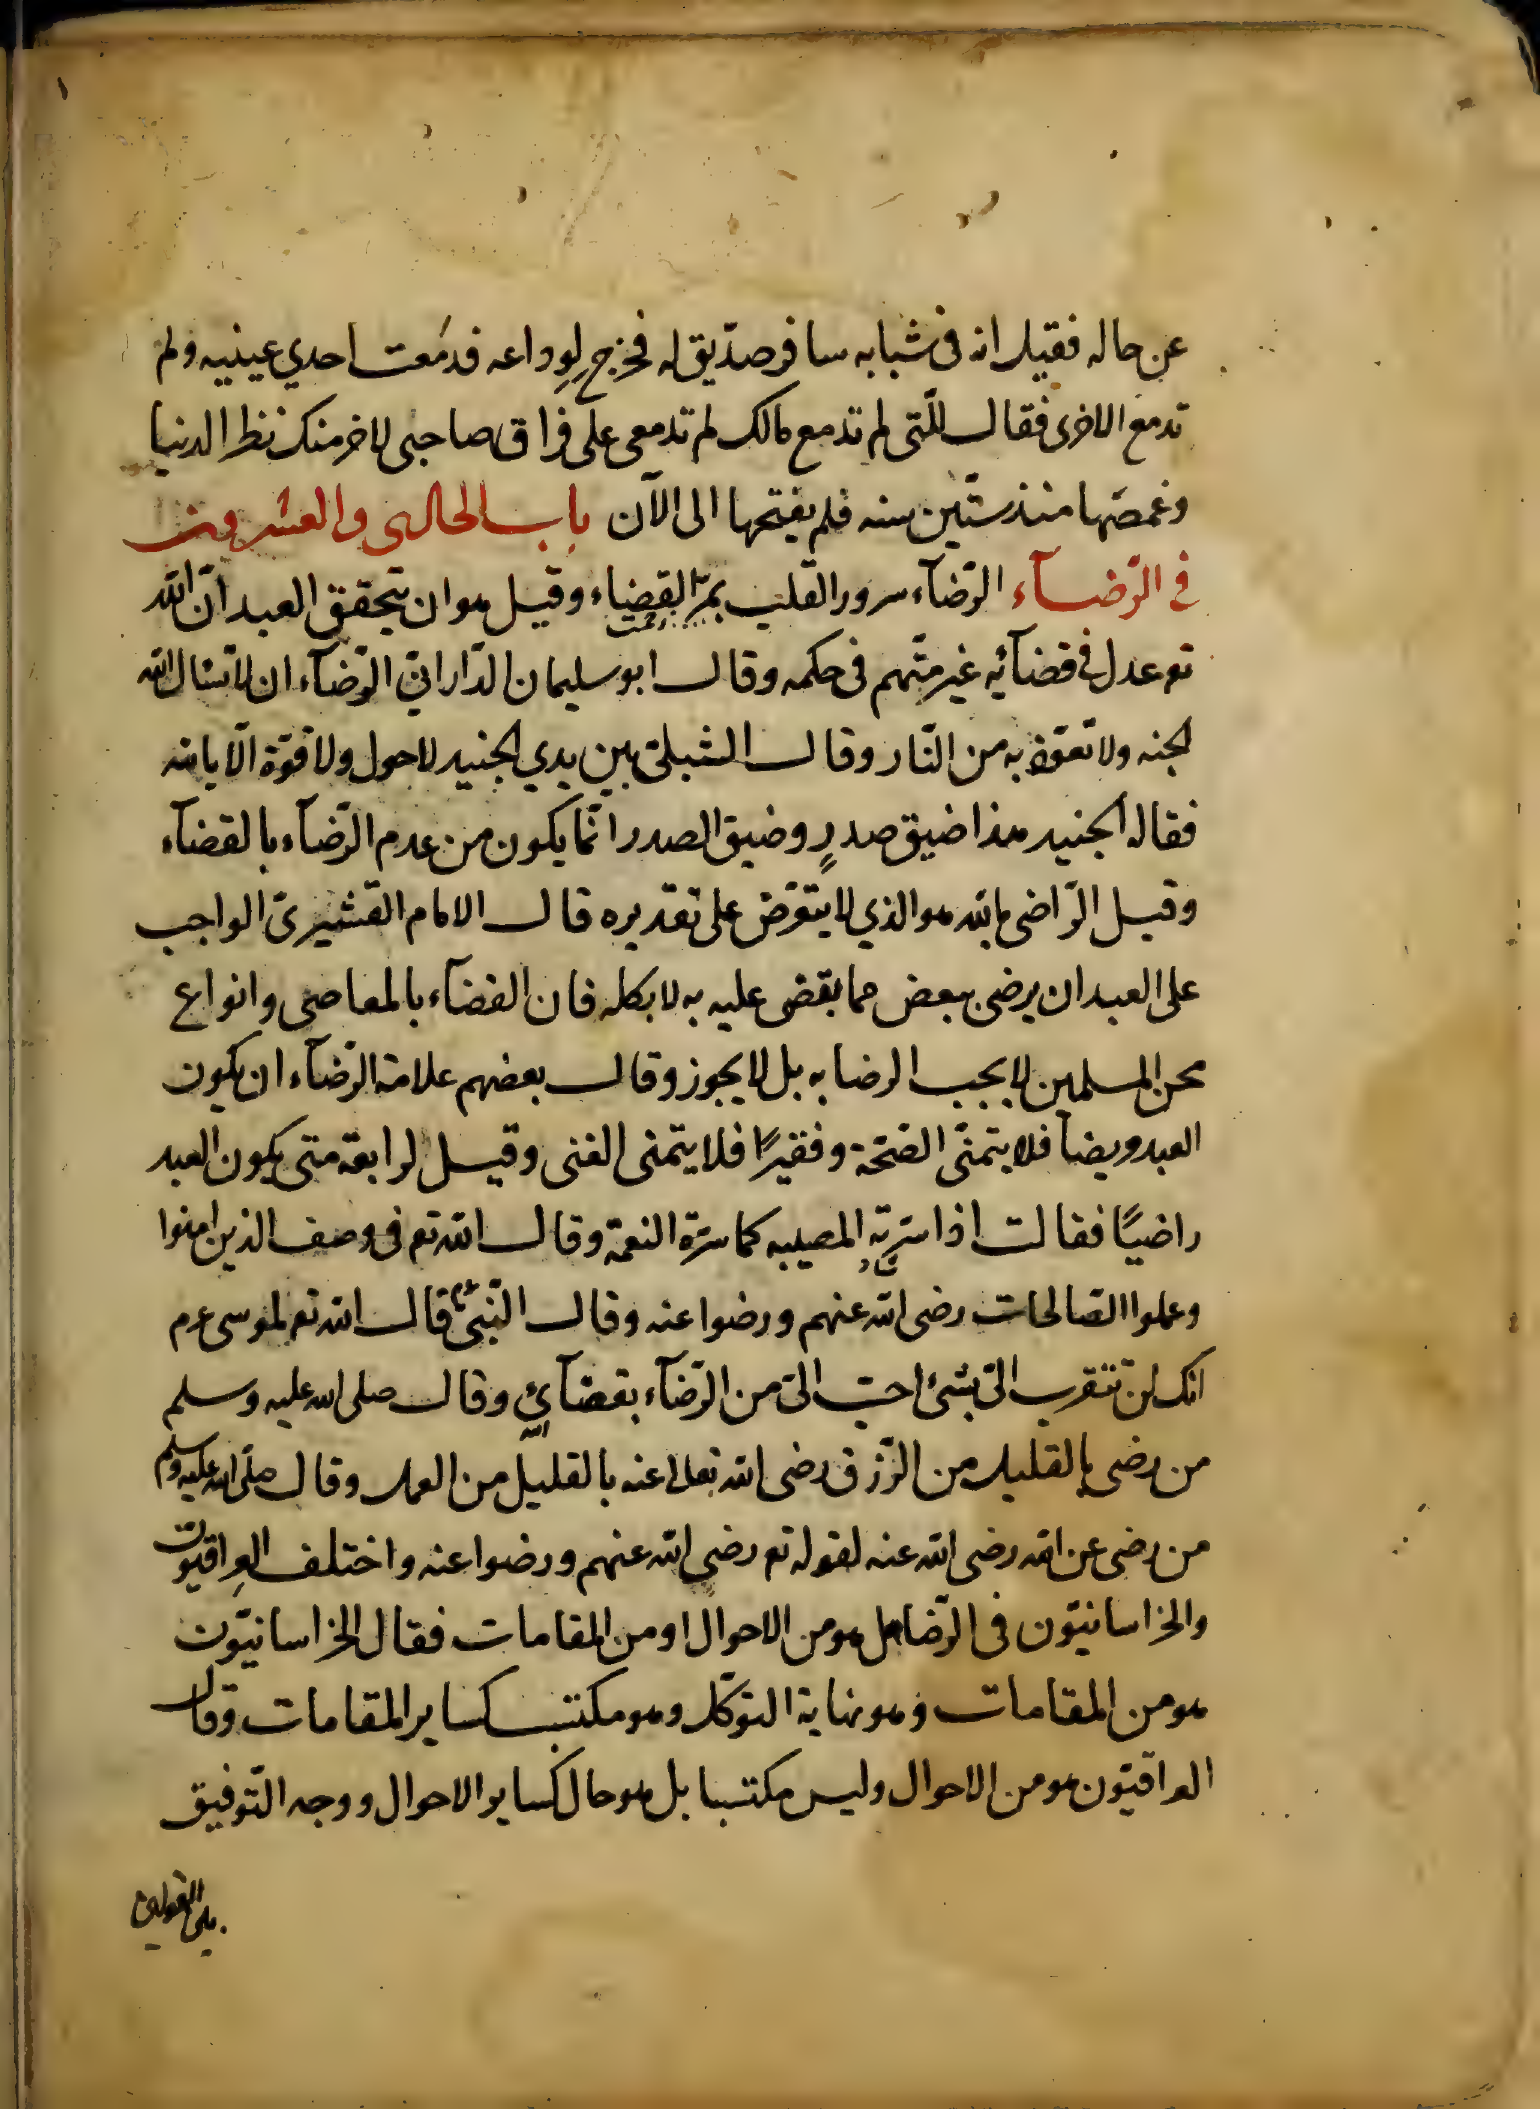 عن حاله فقيل انه فى شبابه سافر صدّيق له فخرج لِوِداعه فدمَعت احدي عينيه ولم
تدمع الاخرى فقال للّتى لم تدمع مالك لم تدمعى على فراق صاحبى لاحرمنك نظر الدنيا
وغمضّها منذ ستّين سنه فلم يفتحها الى الآن باب الحادى والعشرون
فى الرّضآء الرّضآء سرور القلب بمرّ القضاء وقيل هو ان يتحقق العبد انّ الله
تع عدل فى قضآئه غير متّهم فى حكمه وقال ابو سليمان الدّارانىّ الرّضآء ان لا تسئال الله
الجنه ولا تعوّذ به من النّار وقال الشبلىّ بين يدي الجنيد لا حول ولا قوّة الّا بالله
فقال الجنيد هذا ضيق صدرٍ وضيق الصدر انّما يكون من عدم الرّضآء بالقضآء
وقيل الرّاضى بالله هو الذي لا يتعرّض على تقديره قال الامام القشيرىّ الواجب
على العبد ان يرضى ببعض مما يقضى عليه به لا بكله فان القضآء بالمعاصى وانواع
محن المسلمين لا يجب الرضا به بل لا يجوز وقال بعضهم علامة الرّضآء ان يكون
العبد مريضاً فلا يتمنّى الصّحّة وفقيرًا فلا يتمنى الغنى وقيل لرابعة متى يكون العبد
راضيًا فقالت اذا سرّته المصيبه كما سرّته النعمة وقال الله تع فى وصف الذين امنوا
وعملوا الصّالحات رضى الله عنهم ورضوا عنه وقال النّبىّ عم قال الله تع لموسى عم
انك لن تتقرب الىّ بشئ احبّ الىّ من الرّضآء بقضآئ وقال صلى الله عليه وسلم
من رضى بالقليل من الرّزق رضى الله تعالى عنه بالقليل من العمل وقال صلّى الله عليه وسلم
من رضى عن الله رضى الله عنه لقوله تع رضى الله عنهم ورضوا عنه واختلف العِراقيّون
والخراسانيّون فى الرّضا هل هو من الاحوال او من المقامات فقال الخراسانيّون
هو من المقامات وهو نهاية التوكّل وهو مكتسب كساير المقامات وقال
العراقيّون هو من الاحوال وليس مكتسبا بل هو حال كساير الاحوال ووجه التّوفيق
بين القولين